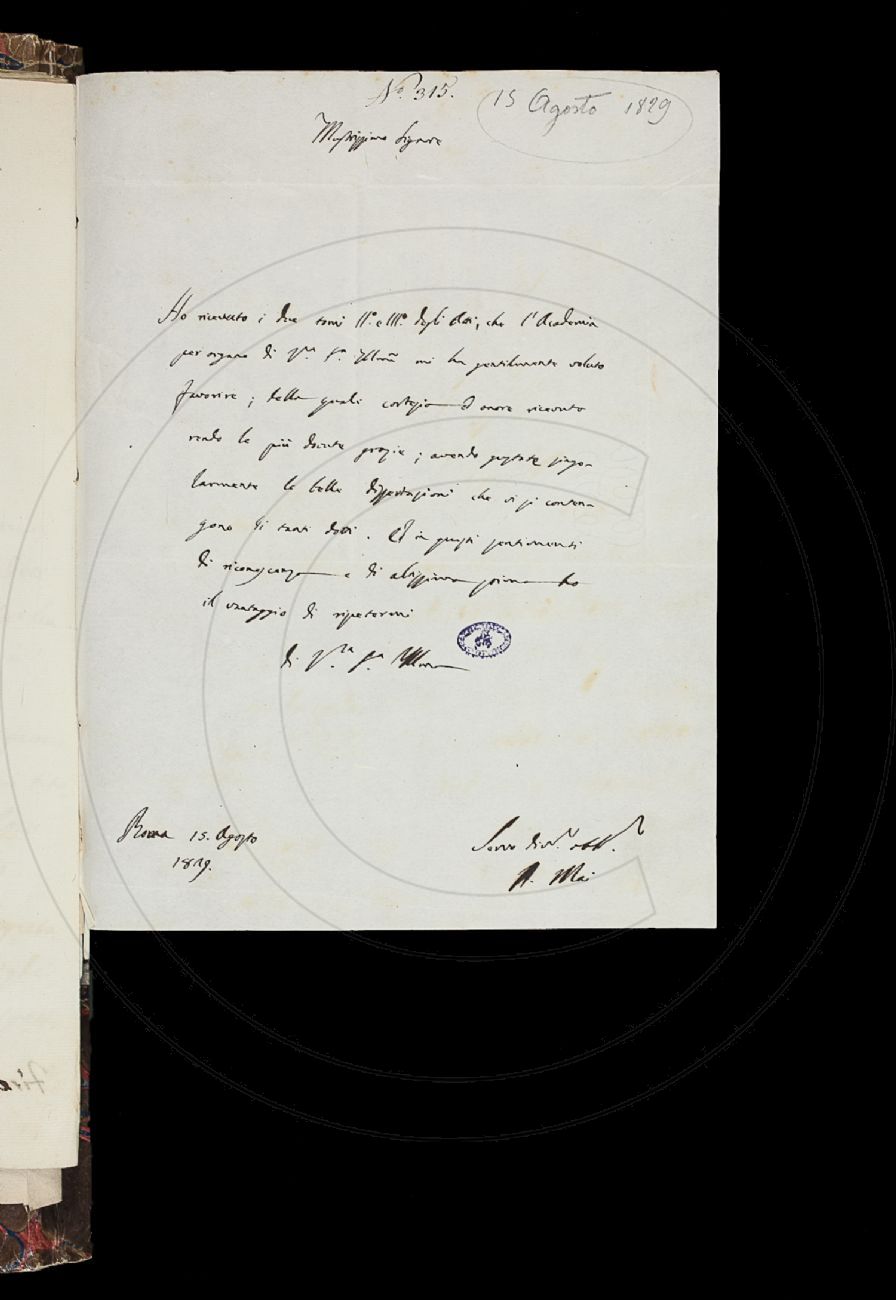 N.º 315.
15 Agosto 1829
Illustrissimo Signore
Ho ricevuto i due tomi II.º e III.º degli Atti, che l'Academia
per organo di V.ra S.ria Illma mi ha gentilmente voluto
favorire; della quali cortesia ed onore ricevuto
rendo le più dovute grazie; avendo gustate singo-
larmente le belle dissertazioni che vi si conten-
gono di tanti dotti. Ed in questi sentimenti
di riconoscenza e di altissima stima ho
il vantaggio di ripetermi
di V.ra S.ria Illma
Roma 15. Agosto
1829.
Servo div.mo obb.mo
A. Mai